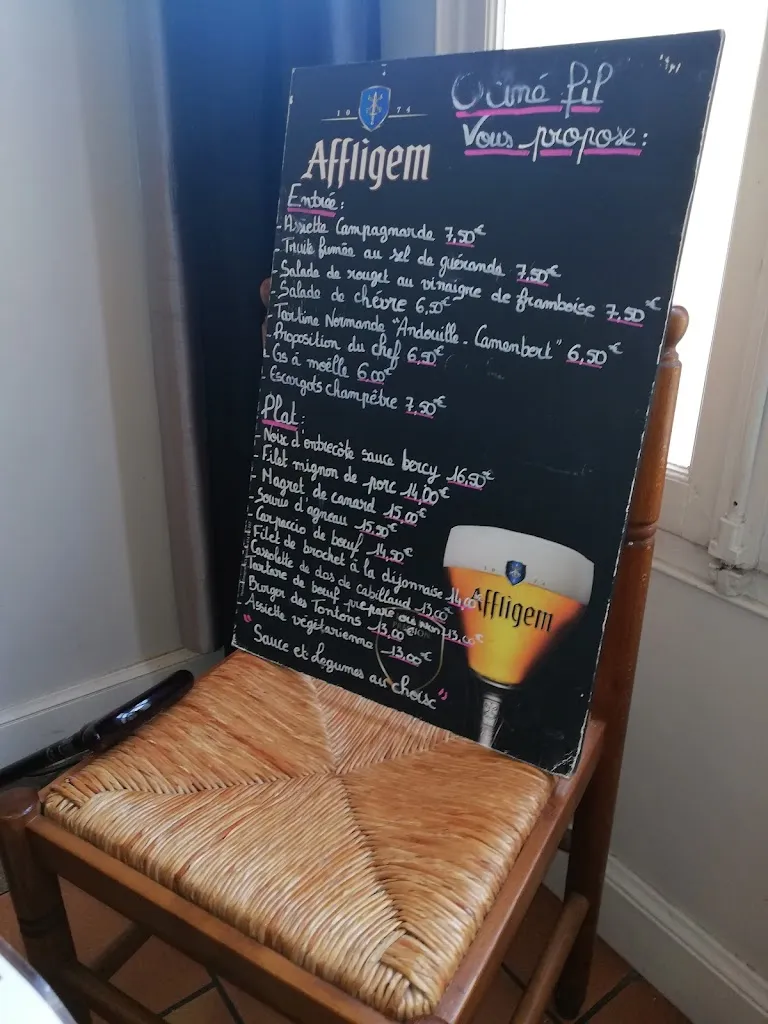 O ciné fil
Vous propose:
1074
Affligem
Entrée:
- Assiette Campagnarde 7,50€
- Truite fumée au sel de guérande 7,50€
- Salade de rouget au vinaigre de framboise 7,50€
- Salade de chévre 6,50€
- Tartine Normande "Andouille - Camenbert" 6,50€
- Proposition du chef 6,50€
- Os à moëlle 6,00€
- Escargots champêtre 7,50€
Plat:
- Noix d'entrecôte sauce bercy 16,50€
- Filet mignon de porc 14,00€
- Magret de canard 15,00€
- Souris d'agneau 15,50€
- Carpaccio de bœuf 14,50€
- Filet de brochet à la dijonnaise 14,00€
- Cassolette de dos de cabillaud 13,00€
Tartare de bœuf préparé ou non 13,00€
Burger des Tontons 13,00€
Assiette végétarienne 13,00€
"Sauce et Legumes au choix"
1074
Affligem